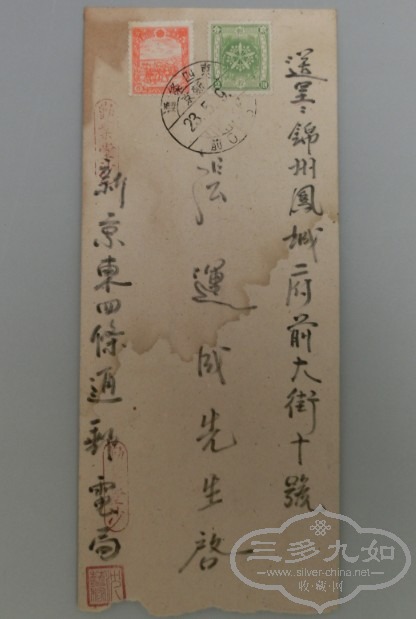 送呈：錦州鳳城二府前大街十號
張運成先生啓
新京東四條通郵電局
23.5.9
三多九如
www.silver-china.net
收·藏·网